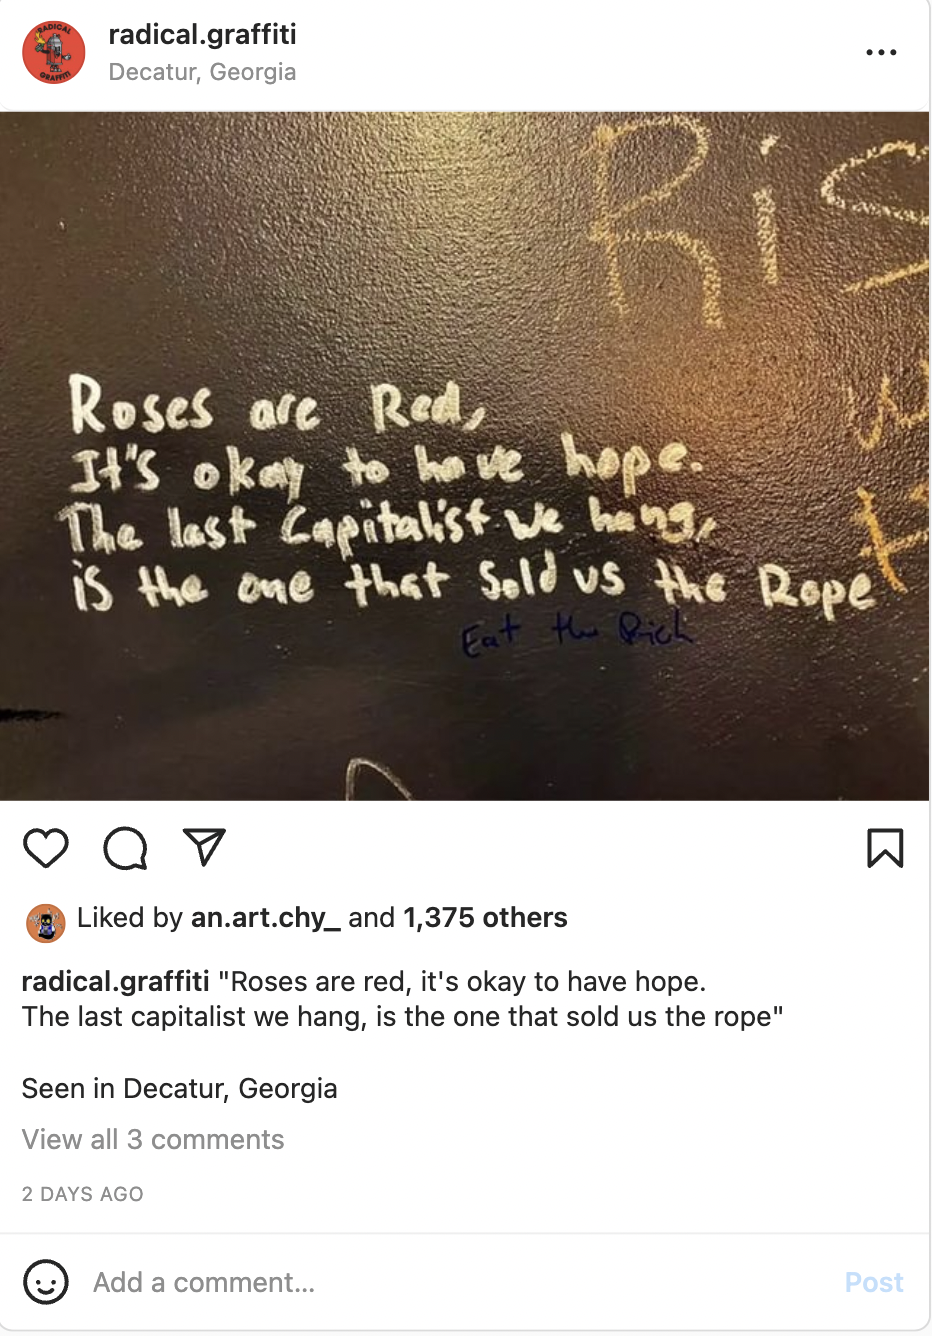 RADICAL
GRAFFITI
radical.graffiti
Decatur, Georgia
Ris
Roses are Red,
It's okay to have hope.
The last Capitalist we hang,
is the one that Sold us the Rope
Eat the Rich
Liked by an.art.chy_ and 1,375 others
radical.graffiti "Roses are red, it's okay to have hope.
The last capitalist we hang, is the one that sold us the rope"
Seen in Decatur, Georgia
View all 3 comments
2 DAYS AGO
Add a comment...
Post